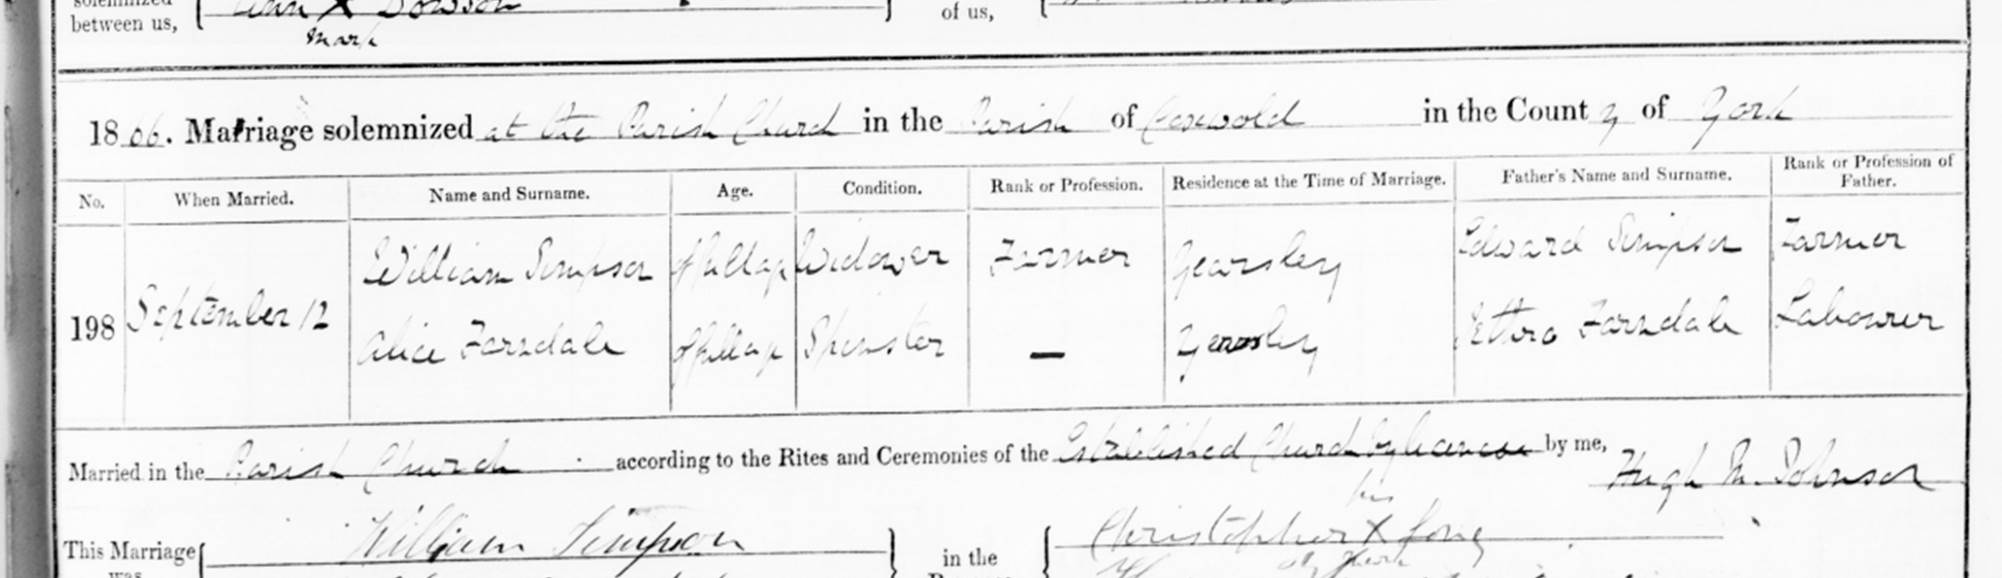 solemnized
between us,
X Dowson
mark
of us,
1866. Marriage solemnized at the Parish Church in the Parish of Coxwold in the County of York
No. When Married. Name and Surname. Age. Condition. Rank or Profession. Residence at the Time of Marriage. Father's Name and Surname. Rank or Profession of Father.
198 September 12
William Simpson of full age Widower Farmer Yearsley Edward Simpson Farmer
Alice Farndale of full age Spinster — Yearsley Jethro Farndale Labourer
Married in the Parish Church according to the Rites and Ceremonies of the Established Church by licence by me,
Hugh M. Johnson
This Marriage
was
William Simpson
in the
his
Christopher X Long
mark